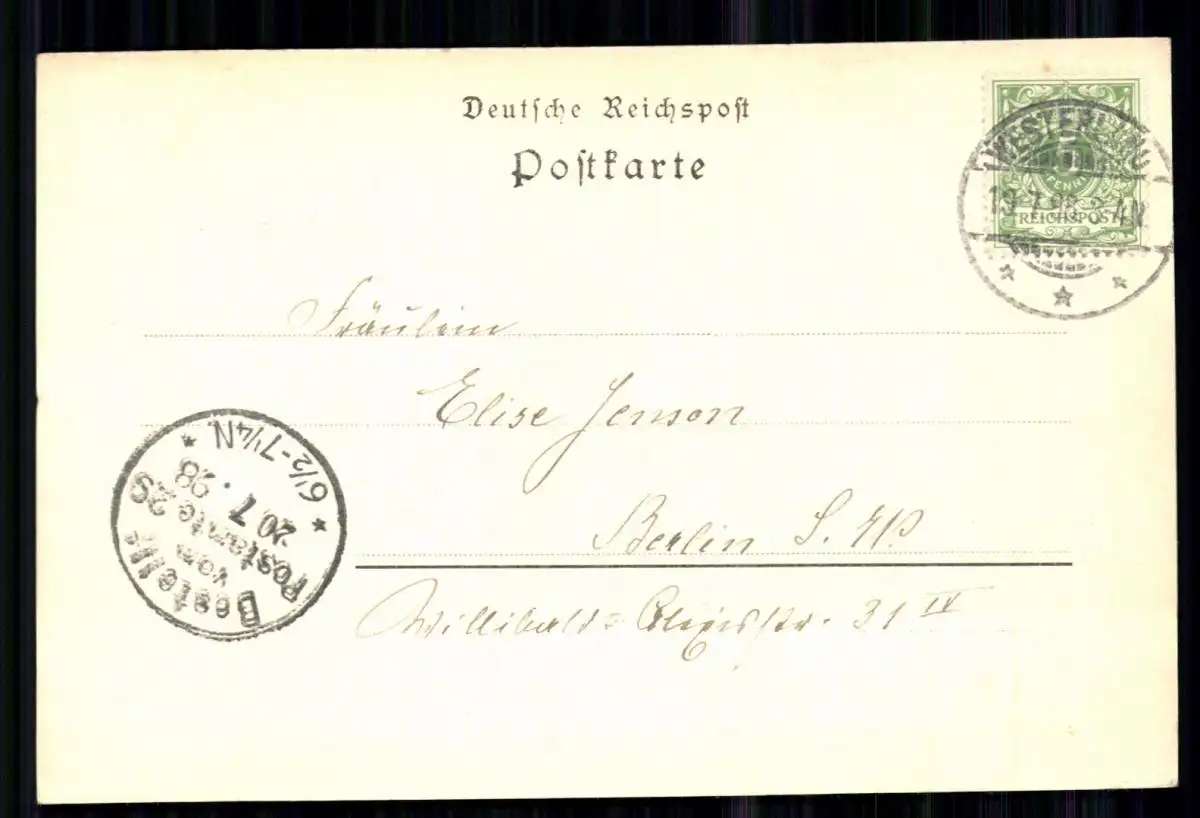 Deutsche Reichspost
Postkarte
REICHSPOST
19.7.98.3-4N
Fräulein
Elise Jenson
Berlin S.W.
Willibald-Alexisstr. 31 IV
Bestellt
vom
Postamte 29
20 7. 98
6½-7¼N.